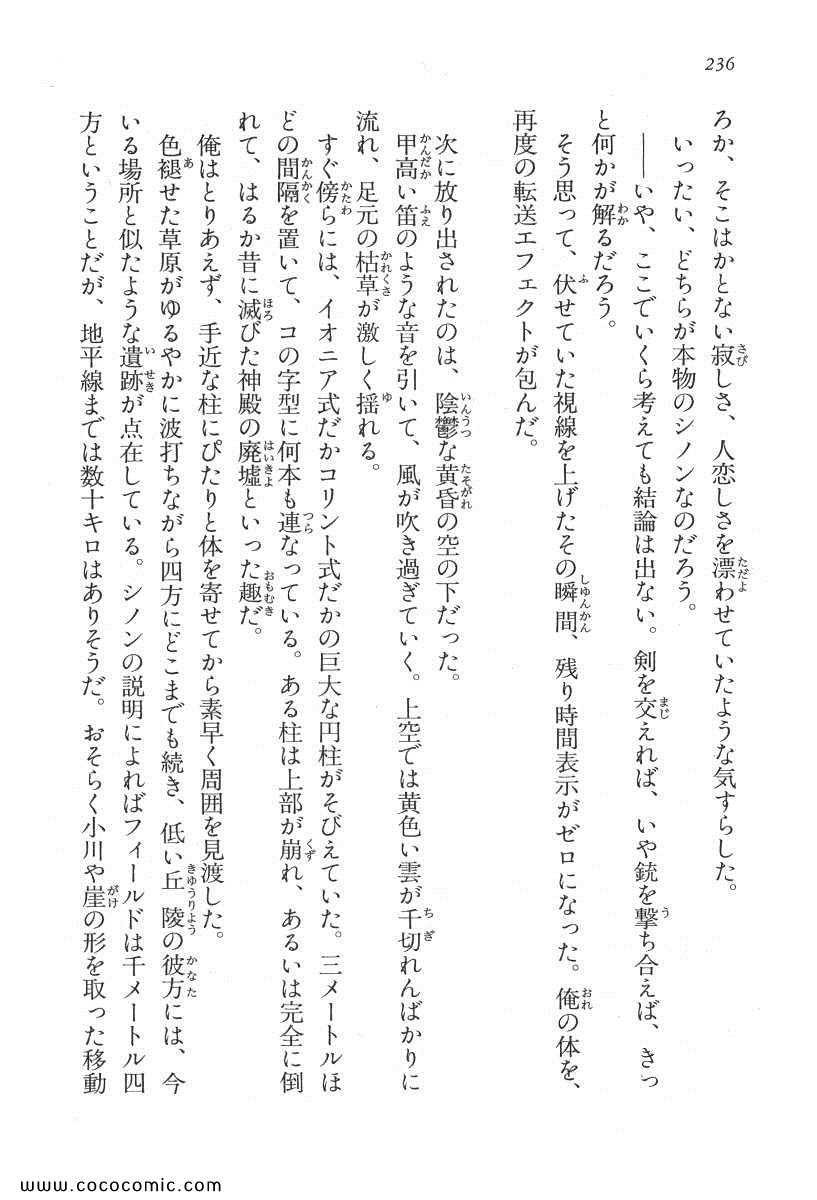 236
ろか、そこはかとない寂しさ、人恋しさを漂わせていたような気すらした。
いったい、どちらが本物のシノンなのだろう。
――いや、ここでいくら考えても結論は出ない。剣を交えれば、いや銃を撃ち合えば、きっ
と何かが解るだろう。
そう思って、伏せていた視線を上げたその瞬間、残り時間表示がゼロになった。俺の体を、
再度の転送エフェクトが包んだ。
次に放り出されたのは、陰鬱な黄昏の空の下だった。
甲高い笛のような音を引いて、風が吹き過ぎていく。上空では黄色い雲が千切れんばかりに
流れ、足元の枯草が激しく揺れる。
すぐ傍らには、イオニア式だかコリント式だかの巨大な円柱がそびえていた。三メートルほ
どの間隔を置いて、コの字型に何本も連なっている。ある柱は上部が崩れ、あるいは完全に倒
れて、はるか昔に滅びた神殿の廃墟といった趣だ。
俺はとりあえず、手近な柱にぴたりと体を寄せてから素早く周囲を見渡した。
色褪せた草原がゆるやかに波打ちながら四方にどこまでも続き、低い丘陵の彼方には、今
いる場所と似たような遺跡が点在している。シノンの説明によればフィールドは千メートル四
方ということだが、地平線までは数十キロはありそうだ。おそらく小川や崖の形を取った移動
www.cococomic.com